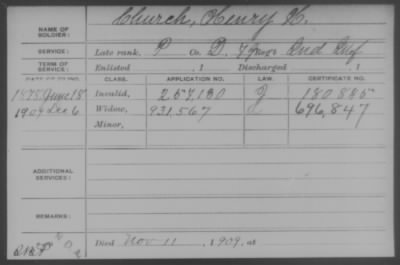 NAME OF SOLDIER: Church, Henry H.
SERVICE: Late rank, P Co. D, 47 Regt Ind Inf
TERM OF SERVICE: Enlisted , 1 Discharged , 1
DATE OF FILING. CLASS. APPLICATION NO. LAW. CERTIFICATE NO.
1878 June 18 Invalid, 257,130 180.885
1909 Dec 6 Widow, 931.567 696,847
Minor,
ADDITIONAL SERVICES:
REMARKS:
Died Nov 11 , 1909, at